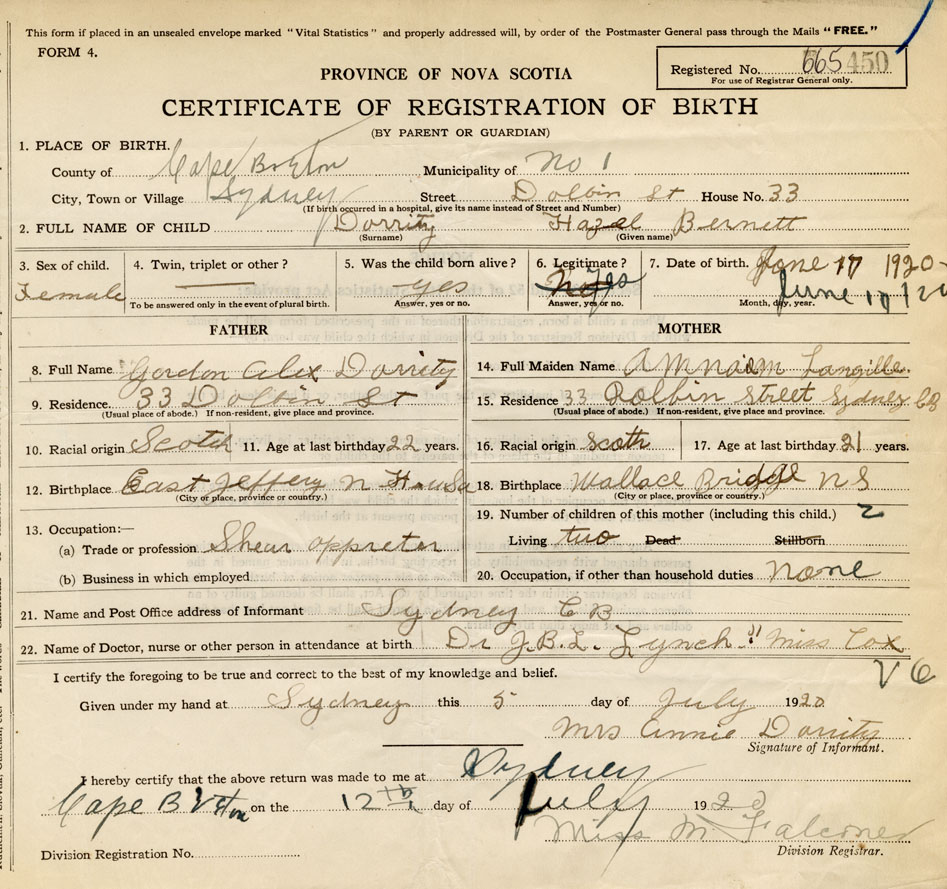 This form if placed in an unsealed envelope marked "Vital Statistics" and properly addressed will, by order of the Postmaster General pass through the Mails "FREE."
FORM 4.
Registered No. 665 450
For use of Registrar General only.
PROVINCE OF NOVA SCOTIA
CERTIFICATE OF REGISTRATION OF BIRTH
(BY PARENT OR GUARDIAN)
1. PLACE OF BIRTH.
County of Cape Breton Municipality of No 1
City, Town or Village Sydney Street Dolbin St House No. 33
(If birth occurred in a hospital, give its name instead of Street and Number)
2. FULL NAME OF CHILD Dorrity Hazel Bernett
(Surname) (Given name)
3. Sex of child. 4. Twin, triplet or other? 5. Was the child born alive? 6. Legitimate? 7. Date of birth. June 17 1920
Female — yes No Yes June 17 / 20
To be answered only in the event of plural birth. Answer, yes or no. Answer, yes or no. Month, day, year.
FATHER MOTHER
8. Full Name Gordon Alex Dorrity 14. Full Maiden Name Langille
9. Residence. 33 Dolbin St 15. Residence 33 Dolbin Street Sydney CB
(Usual place of abode.) If non-resident, give place and province. (Usual place of abode.) If non-resident, give place and province.
10. Racial origin Scotch 11. Age at last birthday 22 years. 16. Racial origin Scoth 17. Age at last birthday 21 years.
12. Birthplace East Jeffery N H USa 18. Birthplace Wallace Bridge N S
(City or place, province or country.) (City or place, province or country.)
13. Occupation:— 19. Number of children of this mother (including this child.) 2
(a) Trade or profession Shear oppreter Living two Dead Stillborn
(b) Business in which employed 20. Occupation, if other than household duties none
21. Name and Post Office address of Informant Sydney C B
22. Name of Doctor, nurse or other person in attendance at birth Dr J. B. L. Lynch " Miss Cox
V 6
I certify the foregoing to be true and correct to the best of my knowledge and belief.
Given under my hand at Sydney this 5 day of July 1920
Mrs Annie Dorrity
Signature of Informant.
I hereby certify that the above return was made to me at Sydney
Cape Breton on the 12th day of July 1920
Miss M. Falconer
Division Registration No. Division Registrar.